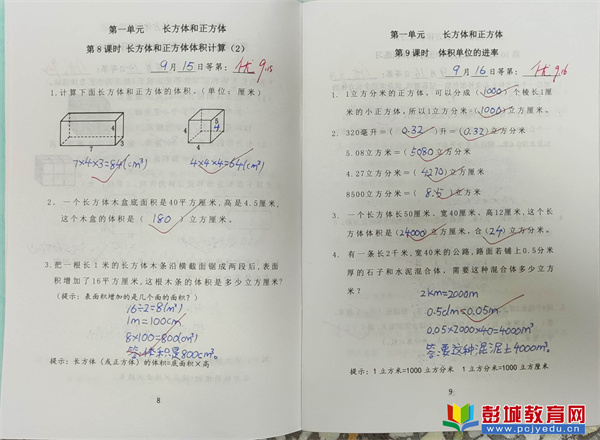 第一单元 长方体和正方体
第8课时 长方体和正方体体积计算（2）
9月15日等第：优9.15
1.计算下面长方体和正方体的体积。（单位：厘米）
4
3
7
4
7×4×3=84(cm³)
4×4×4=64(cm³)
2．一个长方体木盒底面积是40平方厘米，高是4.5厘米，
这个木盒的体积是（180）立方厘米。
3.把一根长1米的长方体木条沿横截面锯成两段后，表面
积增加了16平方厘米，这根木条的体积是多少立方厘米？
（提示：表面积增加的是几个面的面积？）
16÷2=8(m²)
1m=100cm
8×100=800(cm³)
答：体积是800cm³。
提示：长方体（或正方体）的体积=底面积×高
8
第一单元 长方体和正方体
第9课时 体积单位的进率
9月16日等第：优9.16
1．1立方分米的正方体，可以分成（1000）个棱长1厘
米的小正方体，所以1立方分米=（1000）立方厘米。
2．320毫升=（0.32）升=（0.32）立方分米
5.08立方米=（5080）立方分米
4.27立方米=（4270）立方分米
8500立方分米=（8.5）立方米
3．一个长方体长50厘米、宽40厘米、高12厘米，这个长
方体体积是（24000）立方厘米，合（24）立方分米。
4．有一条长2千米，宽40米的公路，路面若铺上0.5分米
厚的石子和水泥混合体，需要这种混合体多少立方
米？
2km=2000m
0.5dm=0.05m
0.05×2000×40=4000m³
答：要这种混泥土4000m³。
提示：1立方米=1000立方分米 1立方分米=1000立方厘米
9
彭城教育网
www.pcjyedu.cn